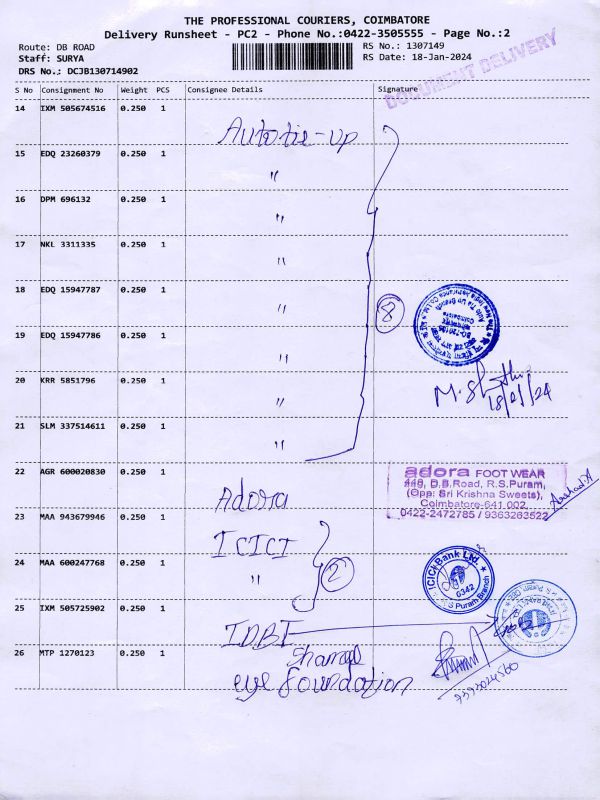 THE PROFESSIONAL COURIERS, COIMBATORE
Delivery Runsheet - PC2 - Phone No.:0422-3505555 - Page No.:2
Route: DB ROAD
RS No.: 1307149
Staff: SURYA
RS Date: 18-Jan-2024
DRS No.: DCJB130714902
DOCUMENT DELIVERY
S No Consignment No Weight PCS Consignee Details Signature
14 IXM 505674516 0.250 1 Autotie-up
15 EDQ 23260379 0.250 1 "
16 DPM 696132 0.250 1 "
17 NKL 3311335 0.250 1 "
18 EDQ 15947787 0.250 1 "
8
19 EDQ 15947786 0.250 1 "
20 KRR 5851796 0.250 1 "
18/01/24
21 SLM 337514611 0.250 1 "
22 AGR 600020830 0.250 1 Adora
adora FOOT WEAR
D.B.Road, R.S.Puram,
(Opp: Sri Krishna Sweets),
Coimbatore-641 002.
0422-2472785 / 9363263522
23 MAA 943679946 0.250 1 ICICI
24 MAA 600247768 0.250 1 "
2
ICICI Bank Ltd.
6342
R S Puram Branch
25 IXM 505725902 0.250 1 IDBI
26 MTP 1270123 0.250 1
eye foundation